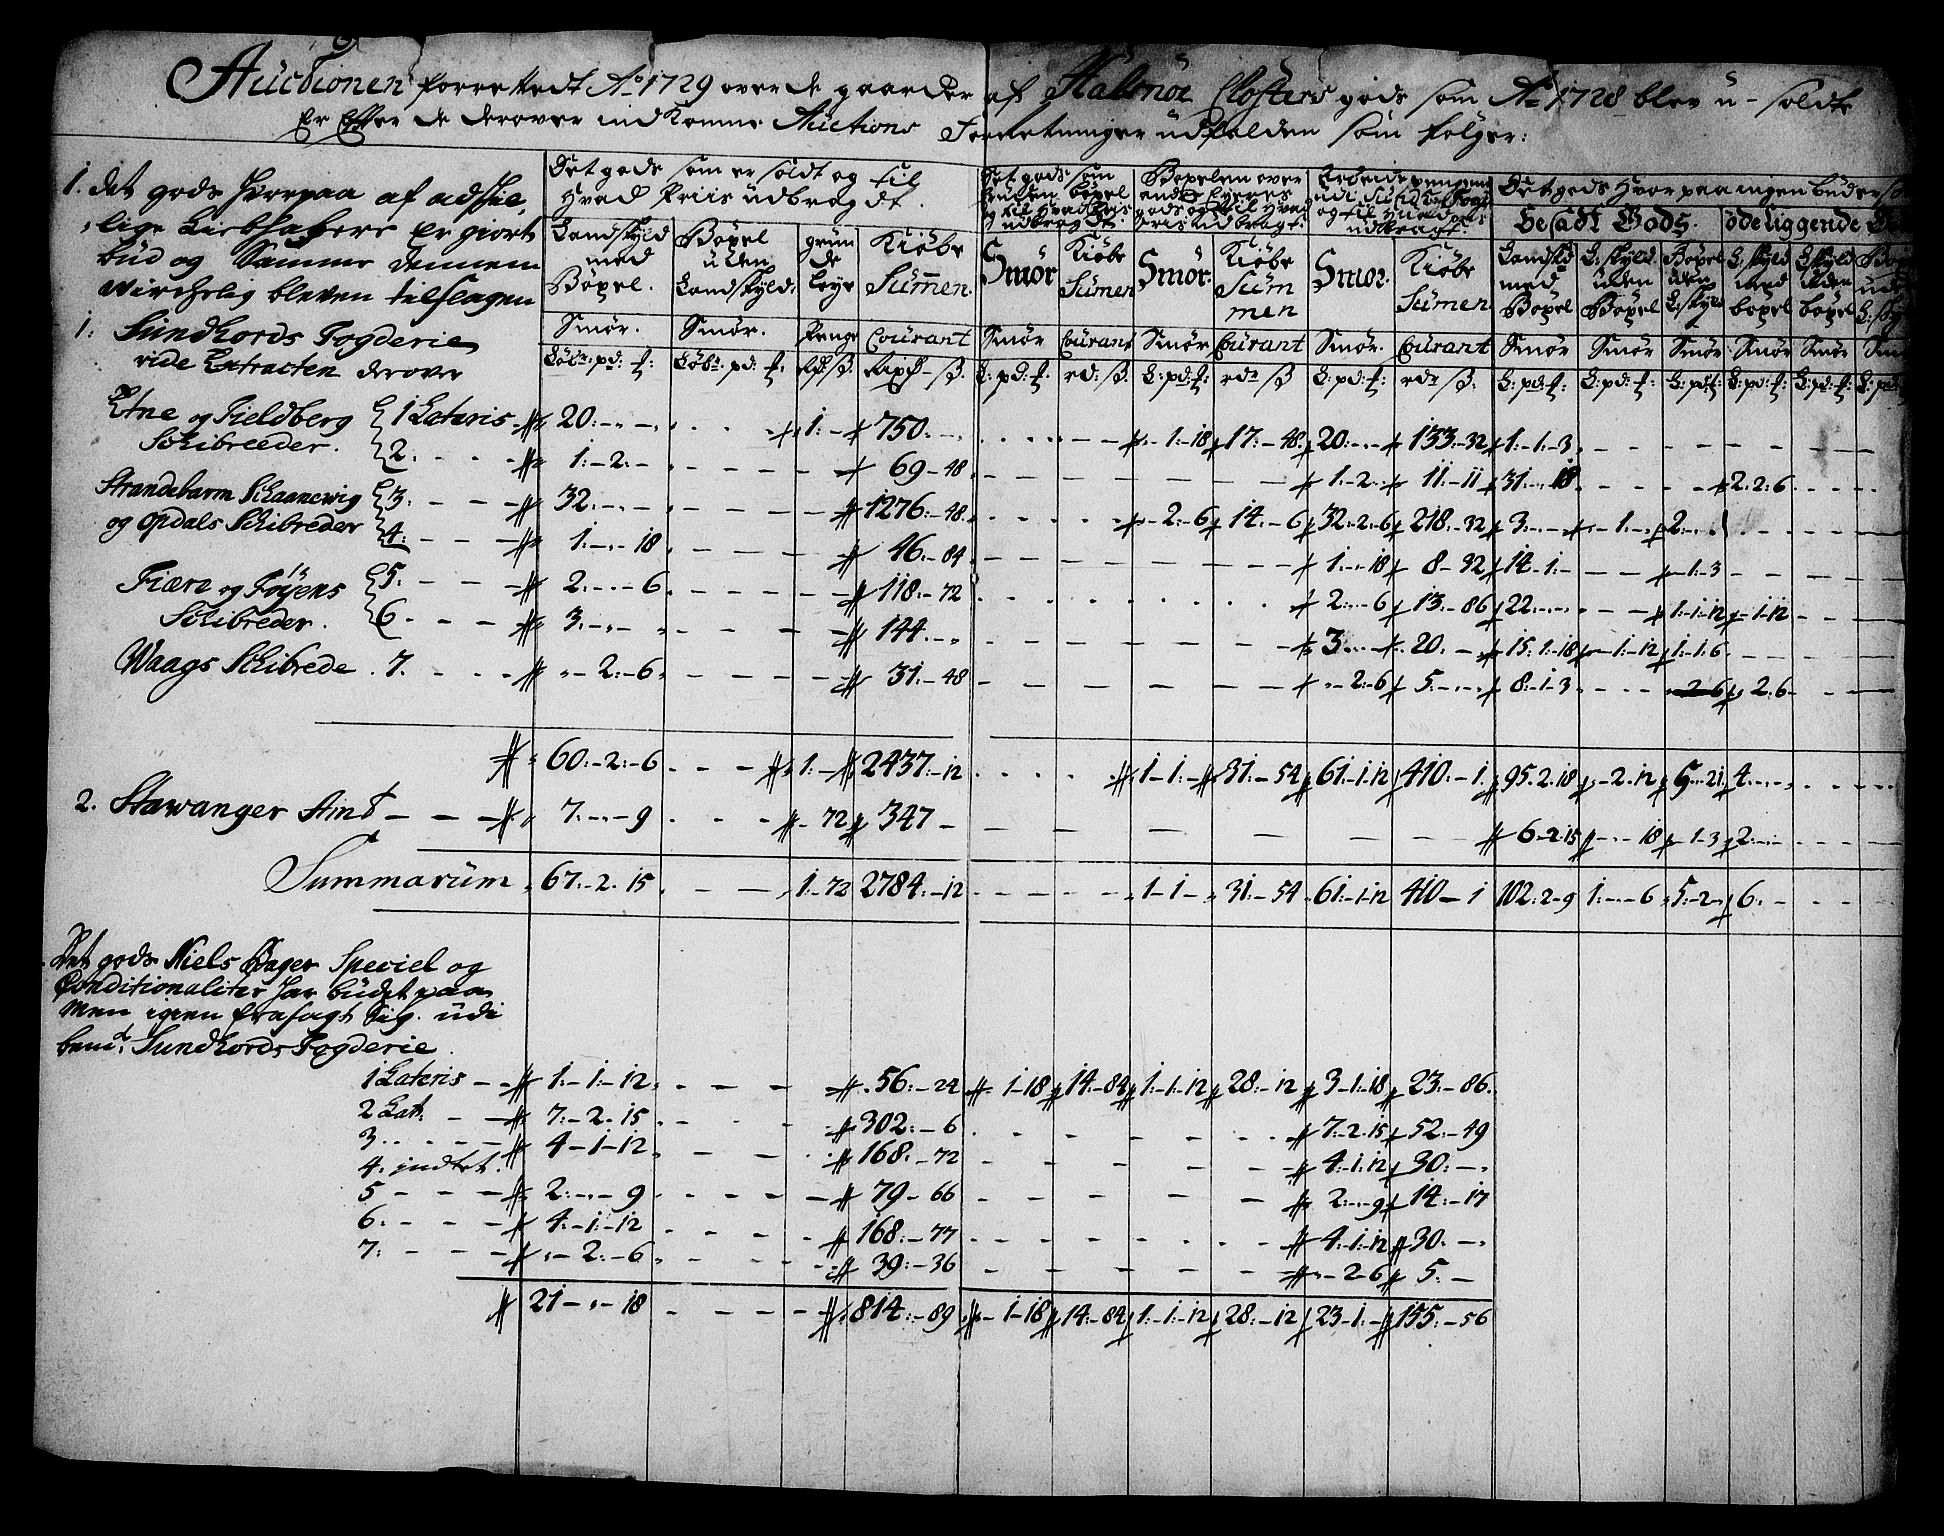 Auctionen forrettedt Ao 1729 over de gaarder af Halsnöe Closters gods som Ao 1728 blev u-soldte
Er Efter de derover indkomne Auctions Forretninger udfalden som følger:
1. Det gods hvorpaa af adskil-
lige Liebhabere er giort
bud og Samme dennem
wirchelig bleven tilslagen
1. Sundhords Fogderie
vide Extracten derover
Det gods som er soldt og til
hvad Priis udbragdt.
Landskyld med Bøxel.
Bøxel uden Landskyld.
grunde leye
Kiöbe Summen.
Det gods som uden bøxel og til hvad Priis udbragt.
Smör
Kiöbe Sumen
Bøxelen over andres Eyeres gods og til hvad priis udbragt.
Smör.
Kiöbe Summen
Smör.
Kiöbe Sumen.
Det gods hvorpaa ingen bud er
Besadt Gods.
ödeliggende
Landsk: med Bøxel
L: skyld uden Bøxel
Bøxel uden L: skyld
L: skyld med bøxel
L: skyld uden bøxel
Smör. Smör. Penge Courant Smör Courant Smör Courant Smör. Courant Smör Smör Smör Smör Smör
Etne og Fieldberg Schibreeder. 1 Lateris 20:-"-" 1:- 750:-" -1-18 17:-48 20:-"-" 133:-32 1-1-3
2. 1:-2:- 69-48 1-2- 11-11 31-"-18 2:2:6
Strandebarm Schaanewig og Opdals Schibreder 3. 32:-"-" 1276:-48 -2:-6 14:-6 32:-2:-6 218:-32 3:-"-" -1- 2:-"
4: 1:-"-18 46:-84 1:-"-18 8-32 14-1:- -1-3
Fiære og Föyens Schibreder. 5. 2:-"-6 118:-72 2:-"-6 13:-86 22:-"-" 1:-1-12 -1-12
6. 3:-"-" 144:-" 3:-"-" 20:- 15.1-18 -1-12 1:-1:6
Waags Schibrede. 7. "-2:-6 31:-48 "-2:-6 5:-"-" 8:-1-3 2-6 2:6
60:-2:-6 1:- 2437:-12 1-1:- 31:-54 61-1-12 410:-1 95.2.18 -2.12 5-"-21 4:-"-"
2. Stawanger Amt 7:-"-9 -72 347- 6-2-15 "-18 -1-3 2:-"-
Summarüm 67:-2-15 1:-72 2784:-12 1-1- 31-54 61:-1-12 410-1 102:2-9 1:-"-6 5:-2-" 6:-
Det gods Niels Bager Speciel og
Conditionaliter har büdet paa
Men igien frasagt Sig. udi
bemt. Sundhords Fogderie.
1 Lateris 1:-1:-12 56:-24 -1-18 14:-84 1:-1:-12 28:-12 3-1:-18 23:-86
2 Lat: 7:-2-15 302:-6 7:-2.15 52:-49
3. 4-1-12 168:-72 4:-1:12 30:-"
4: indtet.
5 2:-"-9 79-66 2:-"-9 14:-17
6. 4:-1:-12 168:-77 4:-1-12 30:-"
7: "-2:-6 39:-36 "-2-6 5:-
21-"-18 814:-89 -1-18 14:-84 1:-1:-12 28:-12 23-1:- 155:-56